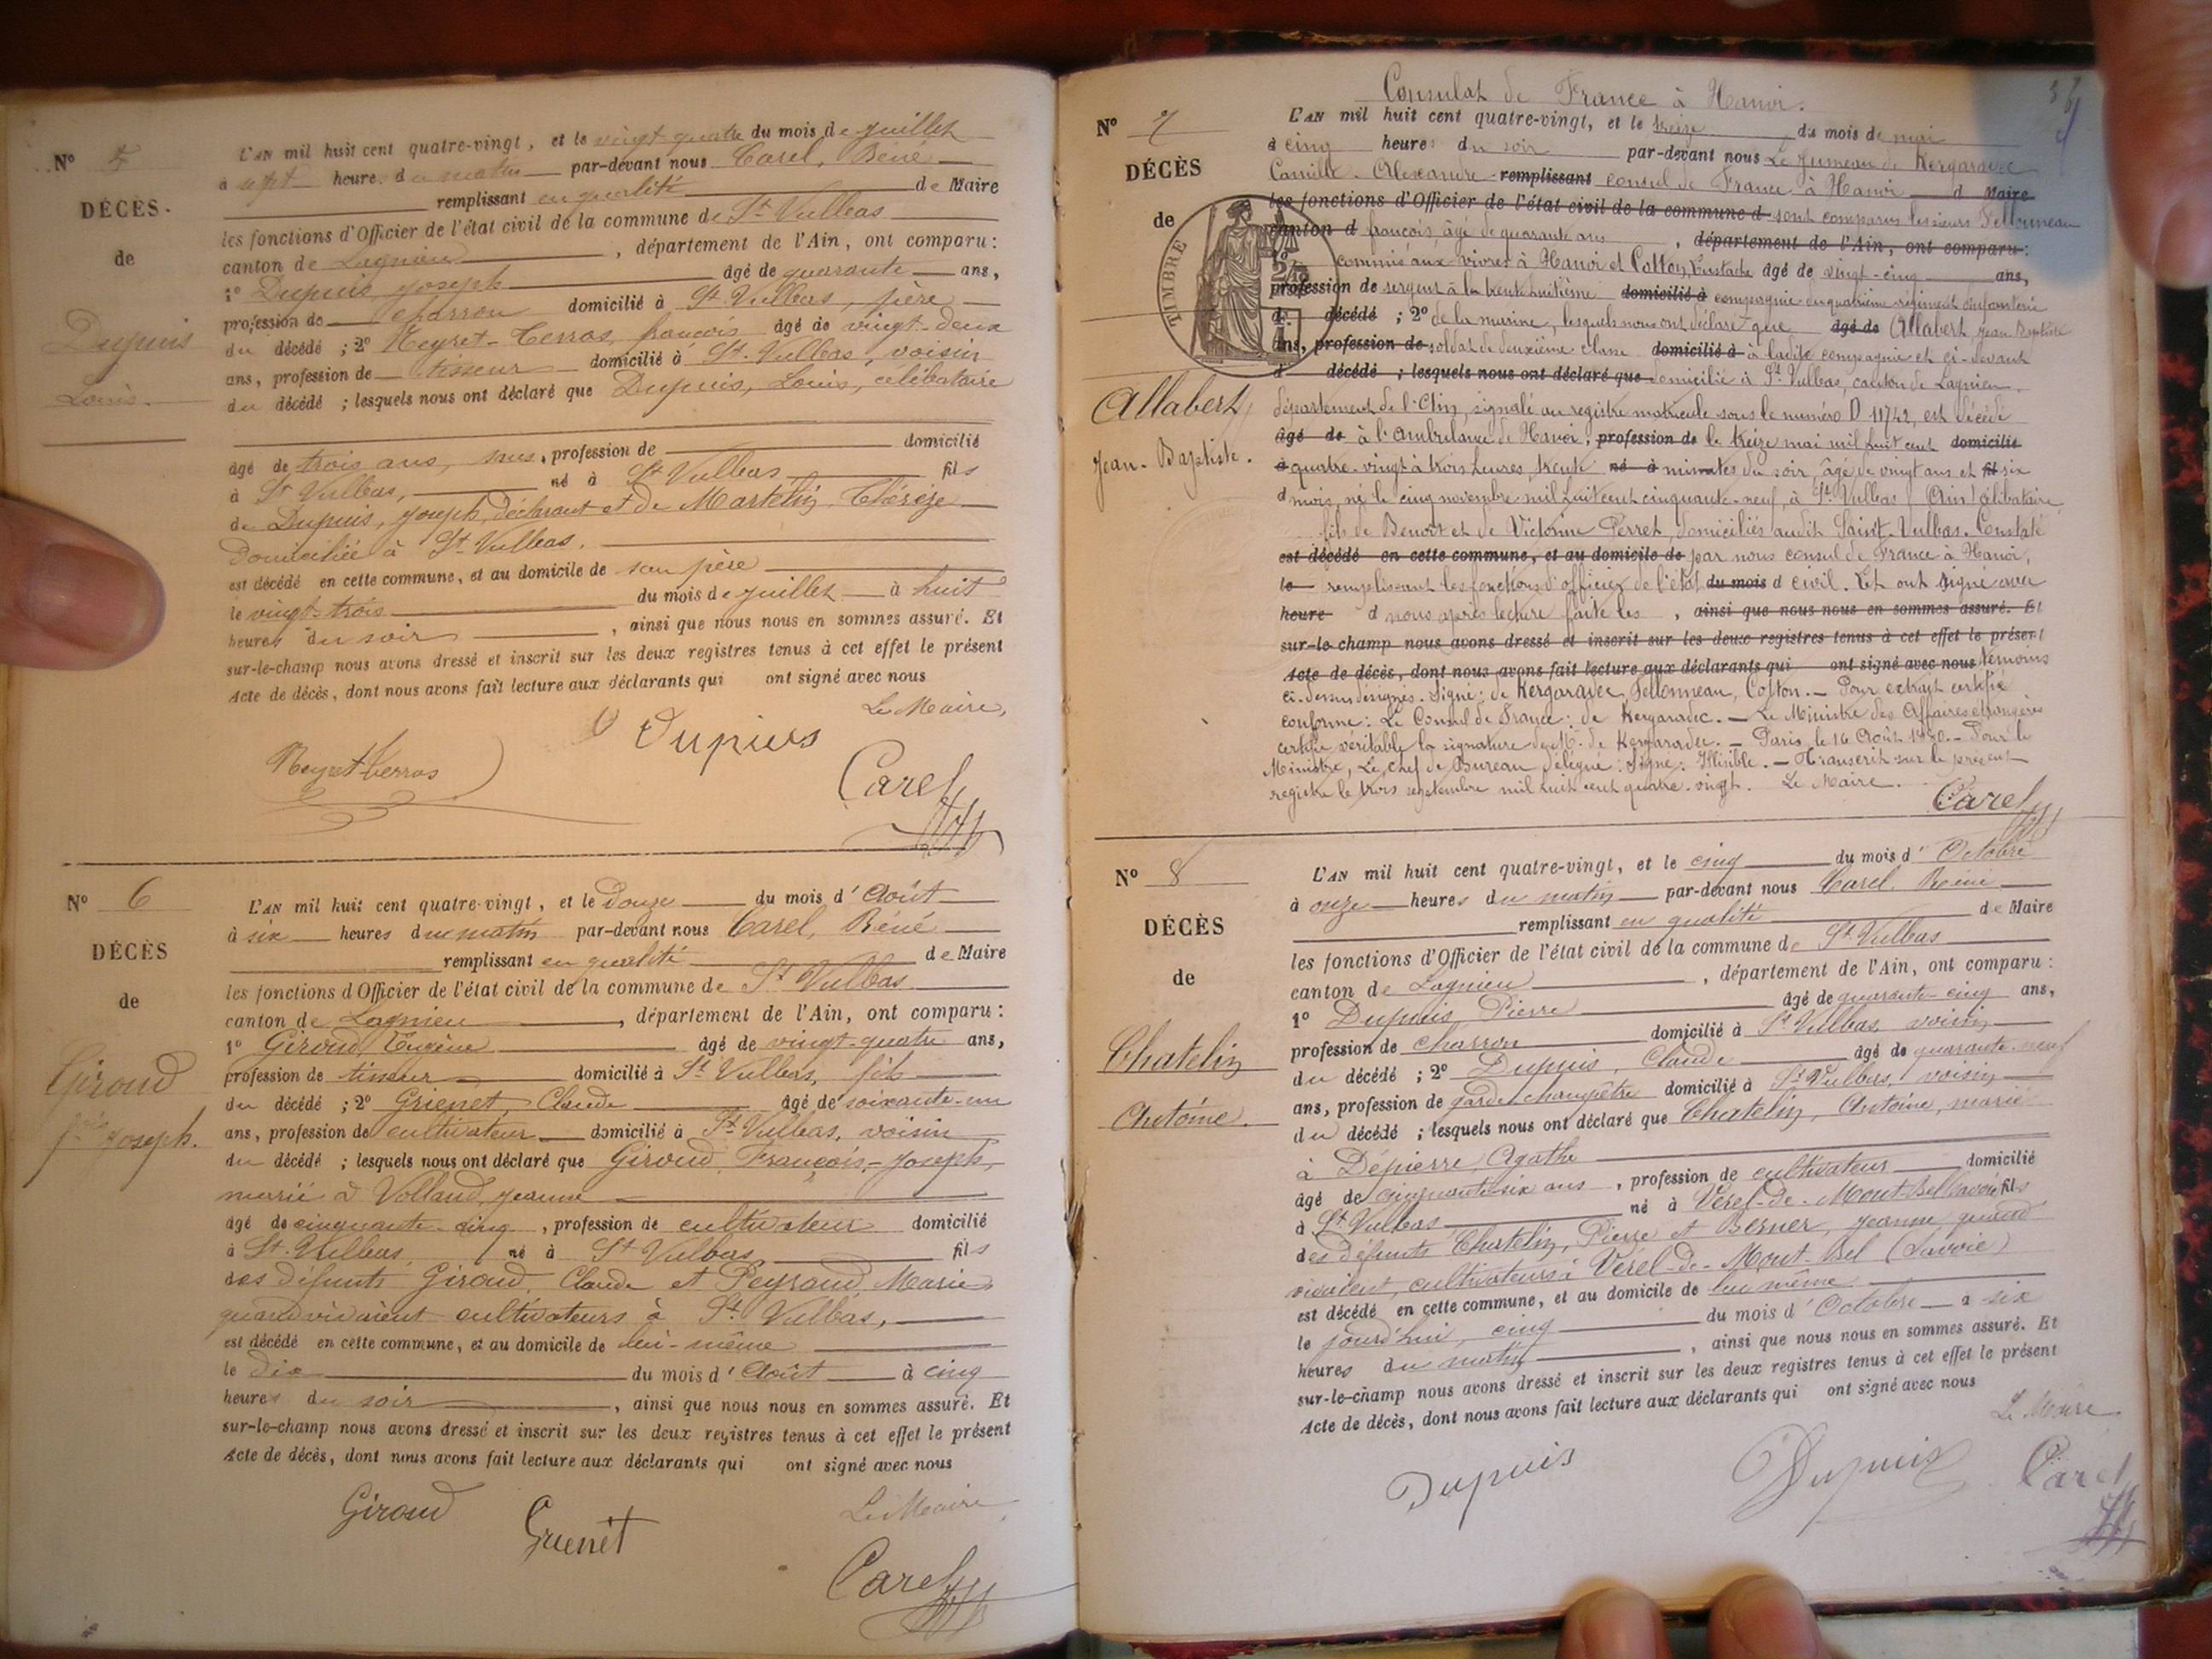 Nº 5
DÉCÈS.
de
Dupuis
Louis.
L'AN mil huit cent quatre-vingt, et le vingt quatre du mois de juillet
à sept heures du matin par-devant nous Carel, Réné
remplissant en qualité de Maire
les fonctions d'Officier de l'état civil de la commune de St Vulbas
canton de Lagnieu, département de l'Ain, ont comparu :
1º Dupuis, Joseph âgé de quarante ans,
profession de charron domicilié à St Vulbas, père
du décédé ; 2º Neyret-Terras, françois âgé de vingt-deux
ans, profession de tisseur domicilié à St. Vulbas, voisin
du décédé ; lesquels nous ont déclaré que Dupuis, Louis, célibataire
âgé de trois ans, sans, profession de domicilié
à St Vulbas, né à St Vulbas fils
de Dupuis, Joseph, déclarant et de Martelin, Thérèze
domiciliée à St Vulbas.
est décédé en cette commune, et au domicile de son père
le vingt-trois du mois de juillet à huit
heures du soir, ainsi que nous nous en sommes assuré. Et
sur-le-champ nous avons dressé et inscrit sur les deux registres tenus à cet effet le présent
Acte de décès, dont nous avons fait lecture aux déclarants qui ont signé avec nous
Le Maire,
Dupuis
Neyret-terras
Carel
Nº 6
DÉCÈS
de
Giroud
Joseph.
L'AN mil huit cent quatre-vingt, et le douze du mois d'Août
à six heures du matin par-devant nous Carel, Réné
remplissant en qualité de Maire
les fonctions d'Officier de l'état civil de la commune de St Vulbas
canton de Lagnieu, département de l'Ain, ont comparu :
1º Giroud, Eugène âgé de vingt-quatre ans,
profession de tisseur domicilié à St Vulbas, fils
du décédé ; 2º Grienet, Claude âgé de soixante-un
ans, profession de cultivateur domicilié à St Vulbas, voisin
du décédé ; lesquels nous ont déclaré que Giroud, François-Joseph,
marié à Volland, Jeanne
âgé de cinquante-cinq, profession de cultivateur domicilié
à St. Vulbas, né à St Vulbas fils
des défunts Giroud, Claude et Peyraud, Marie
quand vivaient cultivateurs à St. Vulbas,
est décédé en cette commune, et au domicile de lui-même
le dix du mois d'Août à cinq
heures du soir, ainsi que nous nous en sommes assuré. Et
sur-le-champ nous avons dressé et inscrit sur les deux registres tenus à cet effet le présent
Acte de décès, dont nous avons fait lecture aux déclarants qui ont signé avec nous
Giroud
Le Maire
Carel
Consulat de France à Hanoi.
Nº 7
DÉCÈS
de
TIMBRE
Allabert,
Jean-Baptiste.
L'AN mil huit cent quatre-vingt, et le treize du mois de mai
à cinq heures du soir par-devant nous Le Jumeau de Kergaradec
Camille-Alexandre remplissant consul de France à Hanoi d Maire
les fonctions d'Officier de l'état civil de la commune d sont comparus les sieurs Fellonneau
canton d françois, âgé de quarante ans, département de l'Ain, ont comparu :
1º commis aux vivres à Hanoi et Cotton, Eustache âgé de vingt-cinq ans,
profession de sergent à la trente huitième domicilié à compagnie du quatrième régiment d'infanterie
d décédé ; 2º de la marine, lesquels nous ont déclaré que âgé de Allabert Jean Baptiste
ans, profession de soldat de deuxième classe domicilié à à ladite compagnie et ci-devant
d décédé ; lesquels nous ont déclaré que domicilié à St. Vulbas, canton de Lagnieu,
département de l'Ain, signalé au registre matricule sous le numéro D 11742, est décédé
âgé de à l'ambulance de Hanoi, profession de le treize mai mil huit cent domicilié
à quatre-vingt à trois heures, trente né à minutes du soir, âgé de vingt ans et fil six
d mois, né le cinq novembre mil huit cent cinquante-neuf, à St. Vulbas (Ain) célibataire,
fils de Benoît et de Victorine Perret, domiciliés audit Saint Vulbas. Constaté
est décédé en cette commune, et au domicile de par nous consul de France à Hanoi,
le remplissant les fonctions d'officier de l'état du mois d civil. Et ont signé avec
heure d nous après lecture faite les, ainsi que nous nous en sommes assuré. Et
sur-le-champ nous avons dressé et inscrit sur les deux registres tenus à cet effet le présent
Acte de décès, dont nous avons fait lecture aux déclarants qui ont signé avec nous témoins
ci-dessus désignés. Signé : de Kergaradec, Fellonneau, Cotton. — Pour extrait certifié
conforme : Le Consul de France : de Kergaradec. — Le Ministre des Affaires étrangères
certifie véritable la signature de M. de Kergaradec. — Paris, le 16 Août 1880. — Pour le
Ministre, Le chef de Bureau délégué : Signé : Illisible. — Transcrit sur le présent
registre le trois septembre mil huit cent quatre-vingt. Le Maire.
Carel
Nº 8
DÉCÈS
de
Chatelin
Antoine.
L'AN mil huit cent quatre-vingt, et le cinq du mois d'Octobre
à onze heures du matin par-devant nous Carel, Réné
remplissant en qualité de Maire
les fonctions d'Officier de l'état civil de la commune de St Vulbas
canton de Lagnieu, département de l'Ain, ont comparu :
1º Dupuis, Pierre âgé de quarante-cinq ans,
profession de charron domicilié à St Vulbas, voisin
du décédé ; 2º Dupuis, Claude âgé de quarante-neuf
ans, profession de garde-champêtre domicilié à St Vulbas, voisin
du décédé ; lesquels nous ont déclaré que Chatelin, Antoine, marié
à Dépierre, Agathe
âgé de cinquante-six ans, profession de cultivateur domicilié
à St Vulbas, né à Vérel-de-Mont-Bel Savoie fils
des défunts Chatelin, Pierre et Berner, Jeanne, quand
vivaient, cultivateurs à Vérel-de-Mont-Bel (Savoie)
est décédé en cette commune, et au domicile de lui même
le jourd'hui, cinq du mois d'Octobre à six
heures du matin, ainsi que nous nous en sommes assuré. Et
sur-le-champ nous avons dressé et inscrit sur les deux registres tenus à cet effet le présent
Acte de décès, dont nous avons fait lecture aux déclarants qui ont signé avec nous
Le Maire
Dupuis
Dupuis
Carel